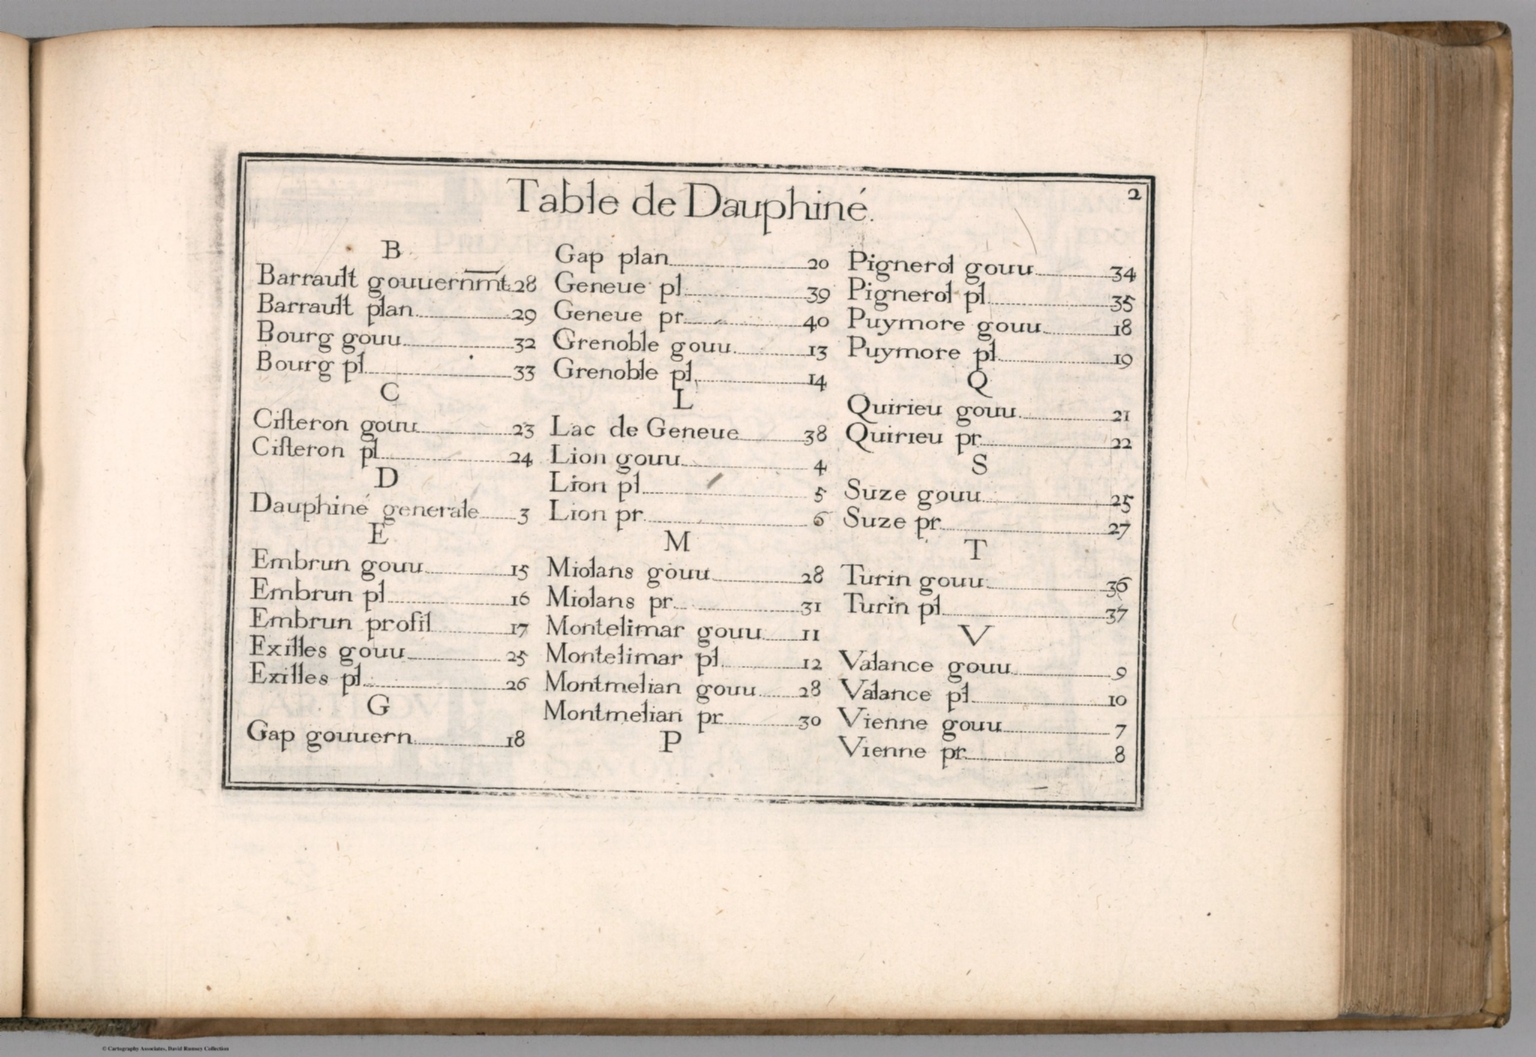 2
Table de Dauphiné.
B
Barrault gouuernm̄t. 28
Barrault plan 29
Bourg gouu 32
Bourg pl 33
C
Cisteron gouu 23
Cisteron pl 24
D
Dauphiné generale 3
E
Embrun gouu 15
Embrun pl 16
Embrun profil 17
Exilles gouu 25
Exilles pl 26
G
Gap gouuern 18
Gap plan 20
Geneue pl 39
Geneue pr 40
Grenoble gouu 13
Grenoble pl 14
L
Lac de Geneue 38
Lion gouu 4
Lion pl 5
Lion pr 6
M
Miolans gouu 28
Miolans pr 31
Montelimar gouu 11
Montelimar pl 12
Montmelian gouu 28
Montmelian pr 30
P
Pignerol gouu 34
Pignerol pl 35
Puymore gouu 18
Puymore pl 19
Q
Quirieu gouu 21
Quirieu pr 22
S
Suze gouu 25
Suze pr 27
T
Turin gouu 36
Turin pl 37
V
Valance gouu 9
Valance pl 10
Vienne gouu 7
Vienne pr 8
© Cartography Associates, David Rumsey Collection